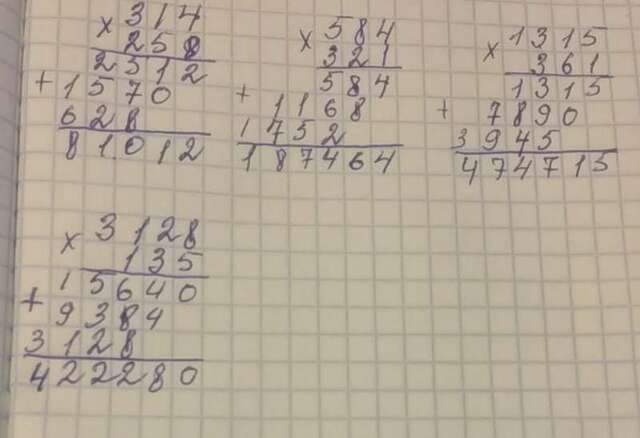 × 314
258
2512
+ 1570
628
81012
× 584
321
584
+ 1168
1752
187464
× 1315
361
1315
+ 7890
3945
474715
× 3128
135
15640
+ 9384
3128
422280